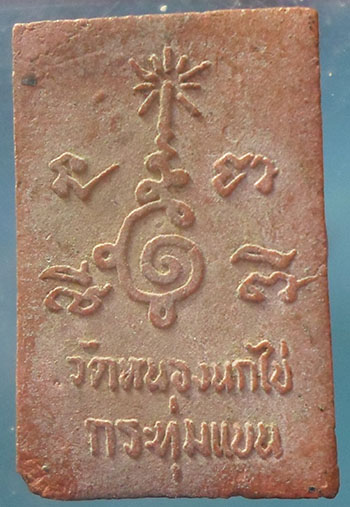 วัดหนองนกไข่
กระทุ่มแบน